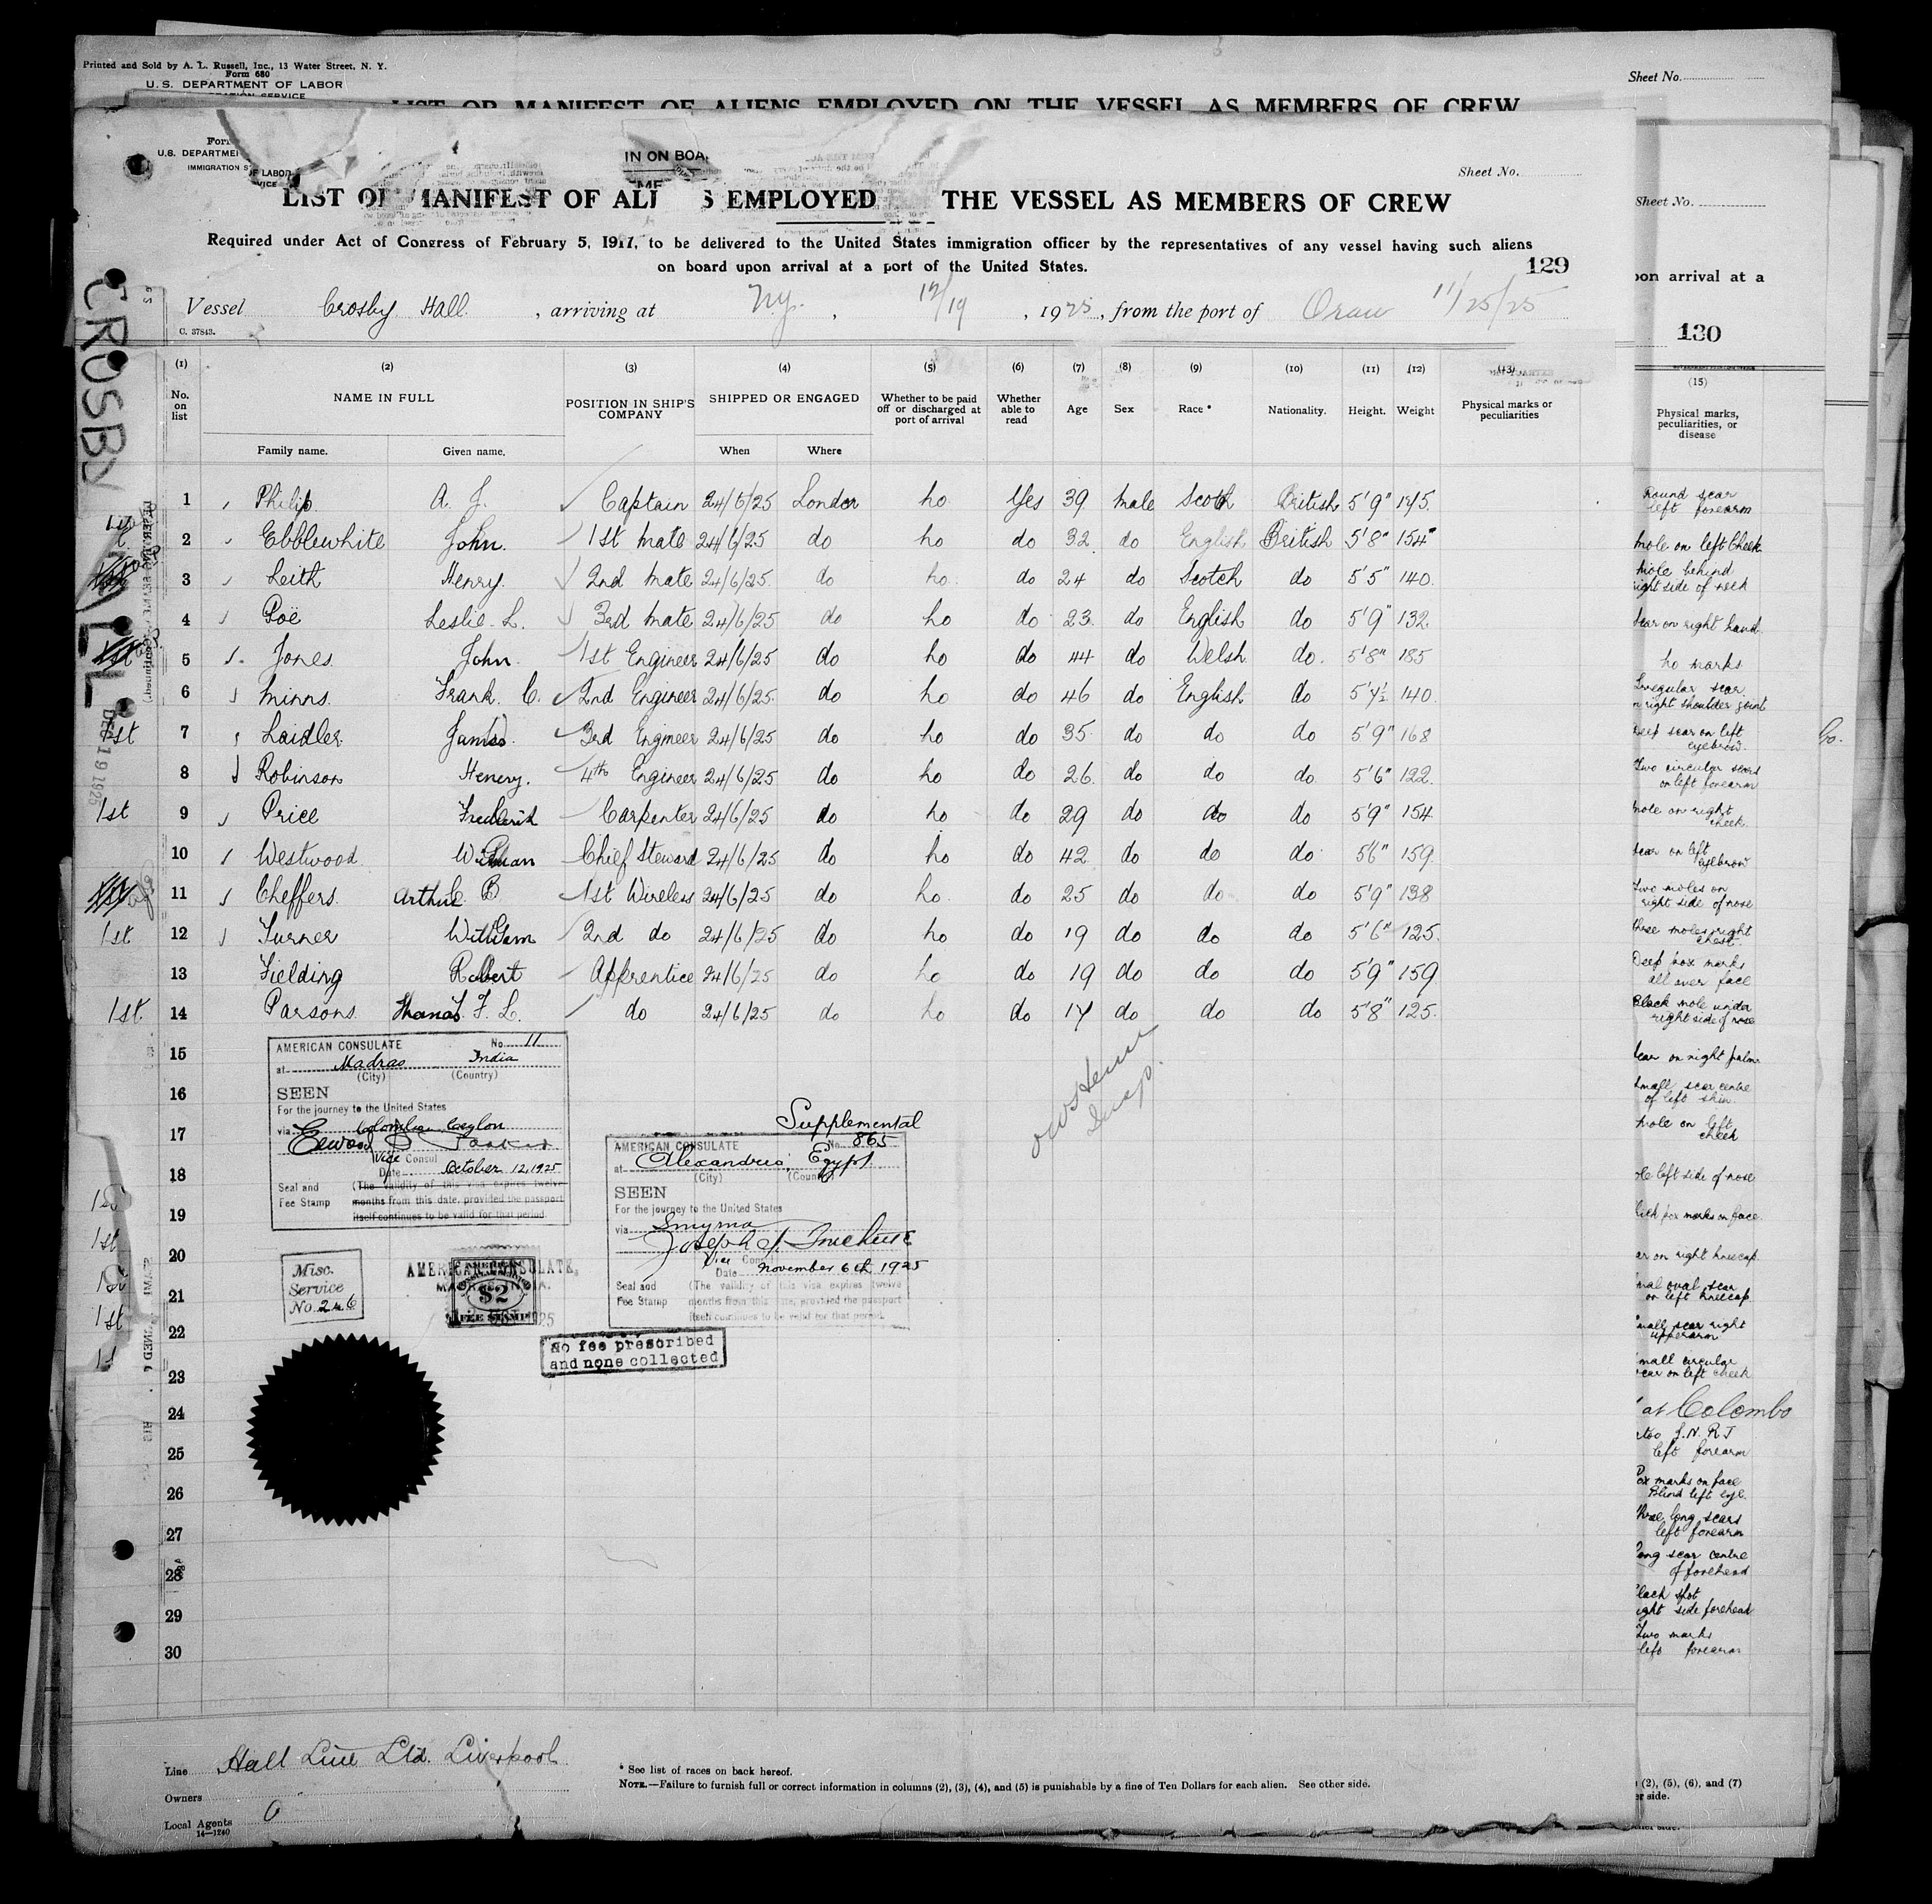 Printed and Sold by A. L. Russell, Inc., 13 Water Street, N. Y.
Form 680
U. S. DEPARTMENT OF LABOR
Sheet No.
LIST OR MANIFEST OF ALIENS EMPLOYED ON THE VESSEL AS MEMBERS OF CREW
U.S. DEPARTME
IMMIGRATION S
OF LABOR
IN ON BOA
Sheet No.
Sheet No.
LIST OR MANIFEST OF ALI S EMPLOYED THE VESSEL AS MEMBERS OF CREW
Required under Act of Congress of February 5, 1917, to be delivered to the United States immigration officer by the representatives of any vessel having such aliens
on board upon arrival at a port of the United States.
129
pon arrival at a
130
CROSBY
Vessel Crosby Hall, arriving at N.y., 12/19, 1925, from the port of Oran 11/25/25
C. 37843.
(1) (2) (3) (4) (5) (6) (7) (8) (9) (10) (11) (12) (13) (15)
No. on list NAME IN FULL POSITION IN SHIP'S COMPANY SHIPPED OR ENGAGED Whether to be paid off or discharged at port of arrival Whether able to read Age Sex Race* Nationality. Height. Weight Physical marks or peculiarities
Physical marks, peculiarities, or disease
Family name. Given name. When Where
1 Philip A. J. Captain 24/6/25 London no Yes 39 male Scotch British 5'9" 195. Round scar left forearm
2 Ebblewhite John. 1st mate 24/6/25 do no do 32 do English British 5'8" 154 mole on left Cheek
3 Leith Henry. 2nd mate 24/6/25. do no. do 24 do Scotch do 5'5" 140. mole behind right side of neck
4 Poë Leslie. L. 3rd mate 24/6/25 do no do 23. do English do 5'9" 132. scar on right hand
1st 5 Jones. John. 1st Engineer 24/6/25 do no do 44 do Welsh do. 5'8" 185 no marks
6 Minns. Frank. C. 2nd Engineer 24/6/25. do no do 46 do English do 5'7½ 140. Irregular scar n right shoulder joint
1st 7 Laidler. James. 3rd Engineer 24/6/25 do no do 35. do do do 5'9" 168 Deep scar on left eyebrow.
8 Robinson Henery. 4th Engineer 24/6/25 do no do 26. do do do. 5'6" 122. Two circular scars on left forearm
1st 9 Price Frederick Carpenter 24/6/25 do no do 29 do do do 5'9" 154 mole on right cheek.
10 Westwood. William Chief Steward 24/6/25 do no do 42 do do do 5'6" 159. scar on left eyebrow
11 Cheffers. Arthur B 1st Wireless 24/6/25 do no. do 25 do do do 5'9" 138 two moles on right side of nose
1st 12 Turner William 2nd do 24/6/25 do no do 19 do do do 5'6" 125. three moles right chest.
13 Fielding Robert Apprentice 24/6/25 do no do 19 do do do 5'9" 159 Deep pox marks all over face
1st. 14 Parsons. Thomas. F. L. do 24/6/25 do no do 17 do do do 5'8" 125. Black mole under right side of nose
DEC 19 1925
15 scar on right palm
16 small scar centre of left shin.
17 mole on left cheek
18 mole left side of nose
19 pox marks on face.
20 ar on right kneecap.
21 oval scar on left kneecap
22 small scar right upperarm
23 mall circular scar on left cheek
24 at Colombo
25 left forearm
26 Pox marks on face Blind left eye.
27 three long scars left forearm
28 Long scar centre of forehead
29 black spot right side forehead
30 Two marks left forearm
AMERICAN CONSULATE No. 11
at Madras India
(City) (Country)
SEEN
For the journey to the United States
via Colombo Ceylon
Vice Consul
Date October 12, 1925
Seal and Fee Stamp (The validity of this visa expires twelve
months from this date, provided the passport
itself continues to be valid for that period.
Supplemental
AMERICAN CONSULATE No. 865
at Alexandria, Egypt
(City) (Country)
SEEN
For the journey to the United States
via Smyrna
Vice Consul
Date November 6th, 1925
Seal and Fee Stamp (The validity of this visa expires twelve
months from this date, provided the passport
itself continues to be valid for that period.
Misc.
Service
No. 246
AMERICAN CONSULATE,
$2
FEE STAMP
No fee prescribed
and none collected
Line Hall Line Ltd. Liverpool
Owners
Local Agents
14—1240
* See list of races on back hereof.
NOTE.—Failure to furnish full or correct information in columns (2), (3), (4), and (5) is punishable by a fine of Ten Dollars for each alien. See other side.
(2), (5), (6), and (7)
er side.